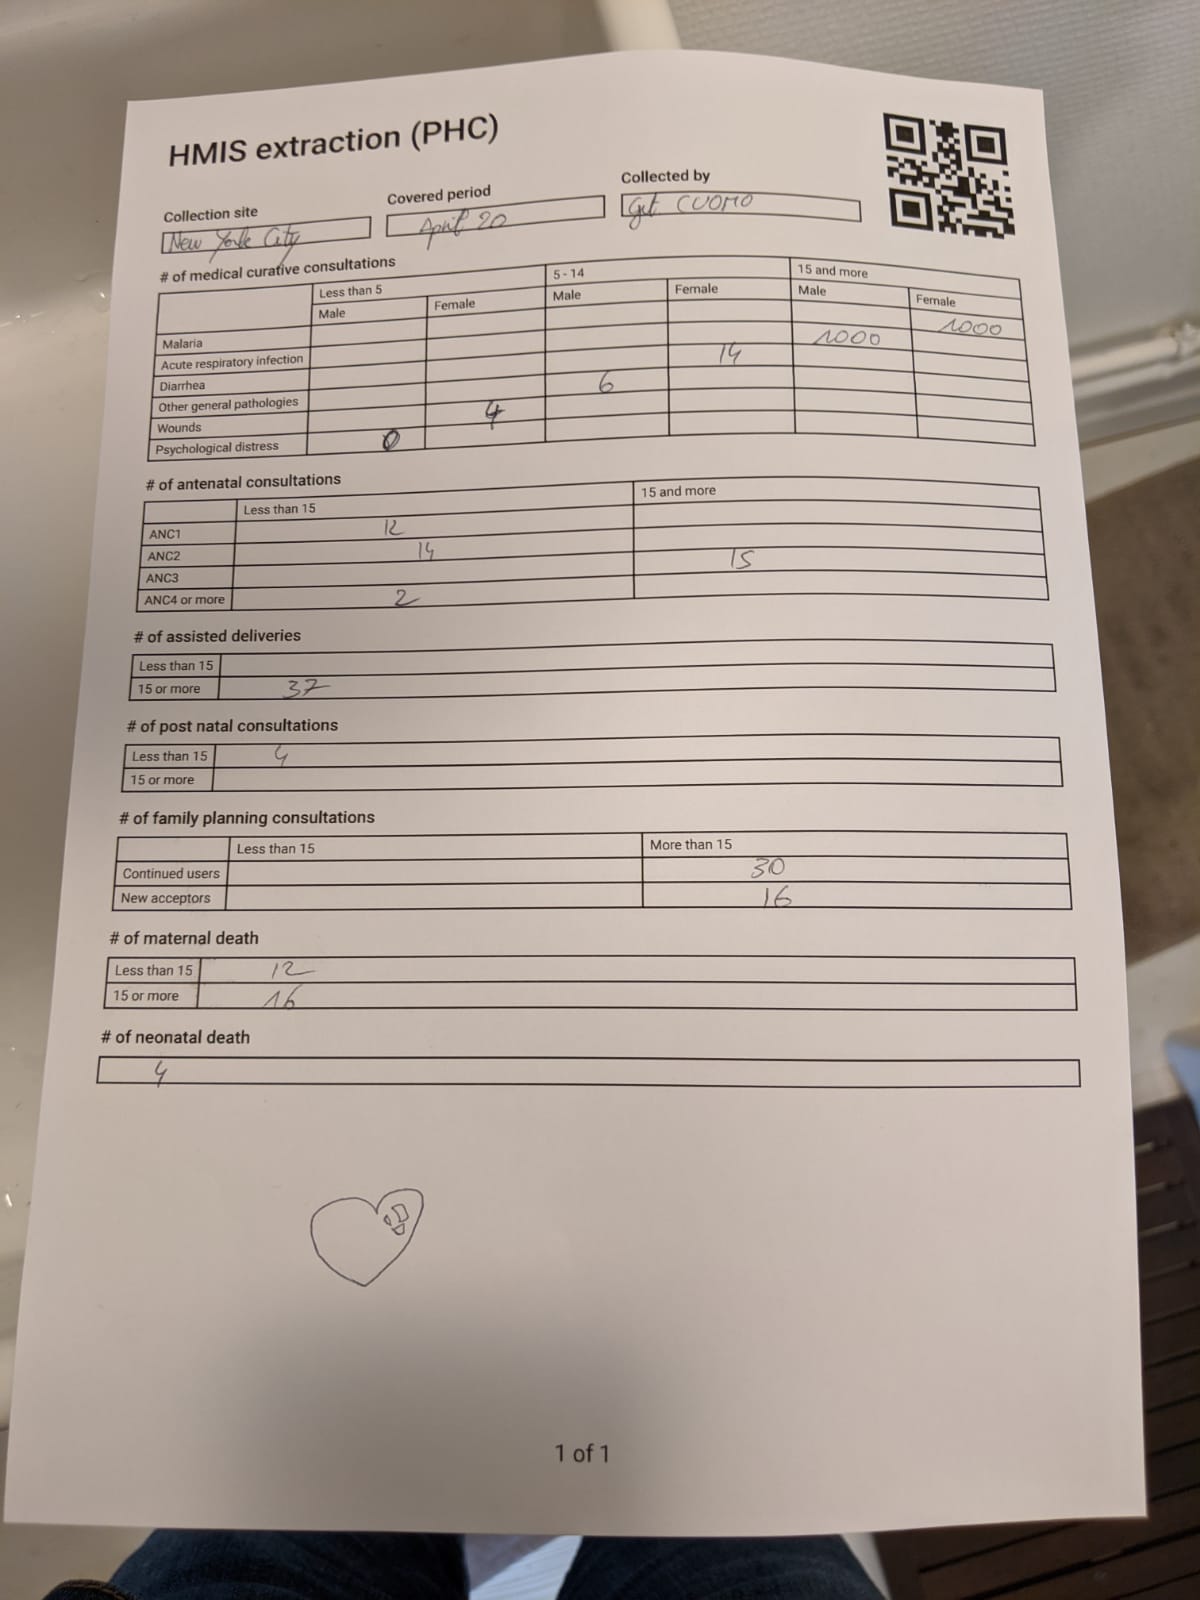 HMIS extraction (PHC)
Collection site Covered period Collected by
New York City April 20 CUOMO
# of medical curative consultations
Less than 5 5 - 14 15 and more
Male Female Male Female Male Female
Malaria 1000
Acute respiratory infection 1000
Diarrhea 14
Other general pathologies 6
Wounds 4
Psychological distress 0
# of antenatal consultations
Less than 15 15 and more
ANC1 12
ANC2 14
ANC3 15
ANC4 or more 2
# of assisted deliveries
Less than 15
15 or more 37
# of post natal consultations
Less than 15 4
15 or more
# of family planning consultations
Less than 15 More than 15
Continued users 30
New acceptors 16
# of maternal death
Less than 15 12
15 or more 16
# of neonatal death
4
1 of 1